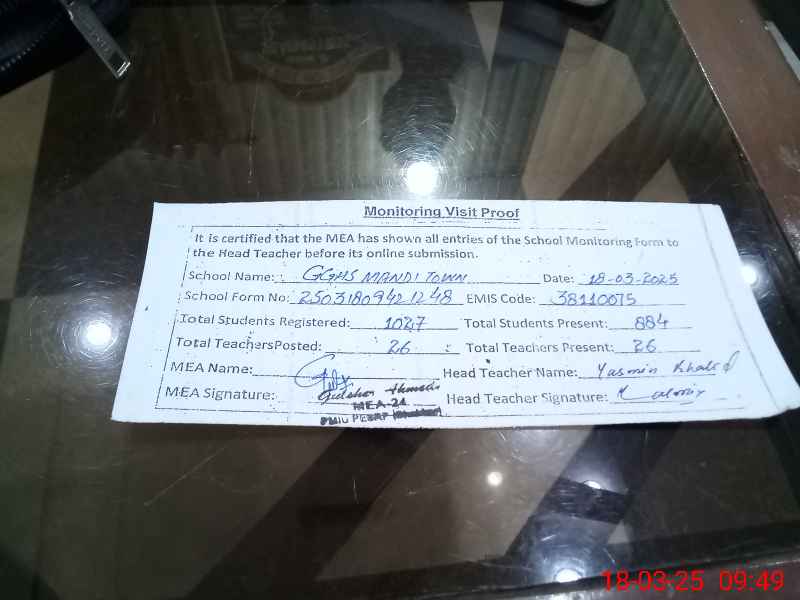 Monitoring Visit Proof
It is certified that the MEA has shown all entries of the School Monitoring Form to
the Head Teacher before its online submission.
School Name: GGHS MANDI TOWN Date: 18-03-2025
School Form No: 25031809421248 EMIS Code: 38110075
Total Students Registered: 1027 Total Students Present: 884
Total TeachersPosted: 26 Total Teachers Present: 26
MEA Name: Head Teacher Name: Yasmin Khalid
MEA Signature: Head Teacher Signature:
MEA-21
PMIU PESRP
18-03-25 09:49